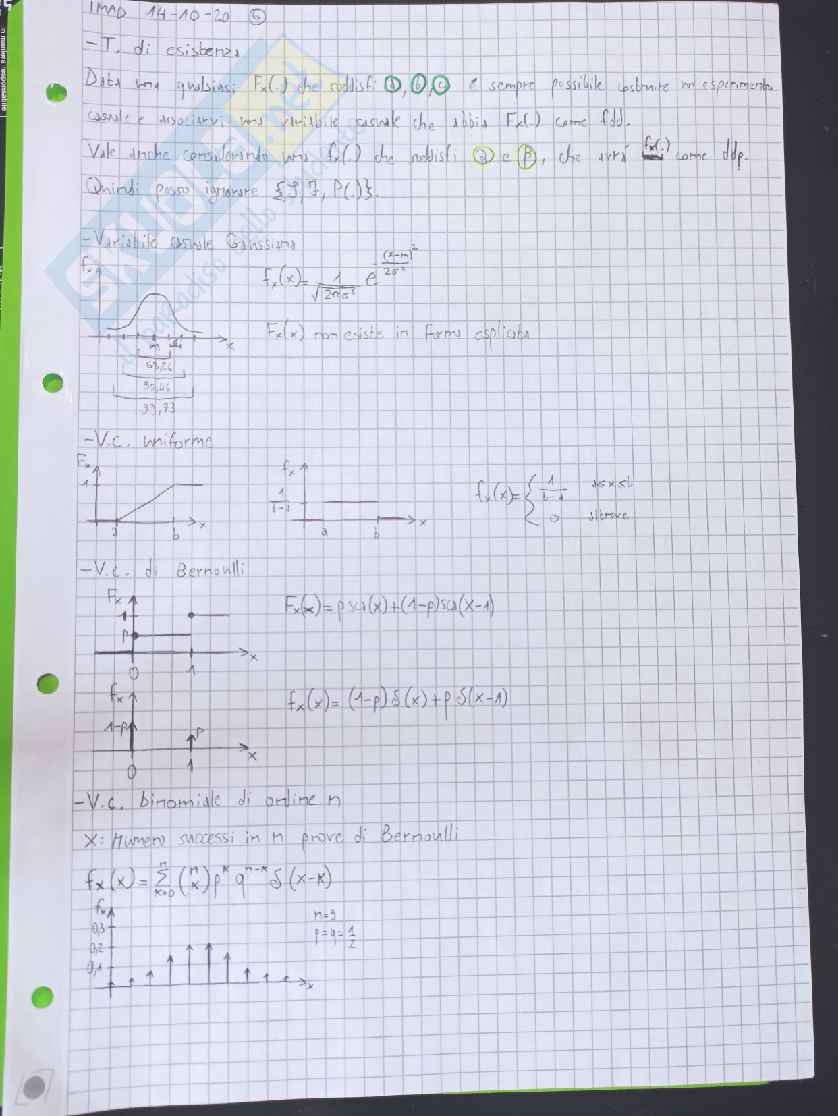 IMAD 14-10-20 5
-T. di esistenza
Data una qualsiasi Fx(.) che soddisfi a, b, c è sempre possibile costruire un esperimento
casuale e associarvi una variabile casuale che abbia Fx(.) come fdd.
Vale anche considerando una fx(.) che soddisfi α e β, che avrà fx(.) come ddp.
Quindi posso ignorare {S, F, P(.)}.
-Variabile casuale Gaussiana
fx
fx(x)= 1/√2πσ² e^-(x-m)²/2σ²
m
x
Fx(x) non esiste in forma esplicita
68,26
95,46
99,73
-V.c. uniforme
Fx
1
a b x
fx
1/b-a
a b x
fx(x)={ 1/b-a a≤x≤b
0 altrove
-V.c. di Bernoulli
Fx
1
p
0 1 x
Fx(x)= p sca(x)+(1-p)sca(x-1)
fx
1-p
p
0 1 x
fx(x)= (1-p) δ(x)+p δ(x-1)
-V.c. binomiale di ordine n
X: Numero successi in n prove di Bernoulli
fx(x)= Σ k=0 n (n k) p^k q^n-k δ(x-k)
fx
0,3
0,2
0,1
x
n=9
p=q=1/2